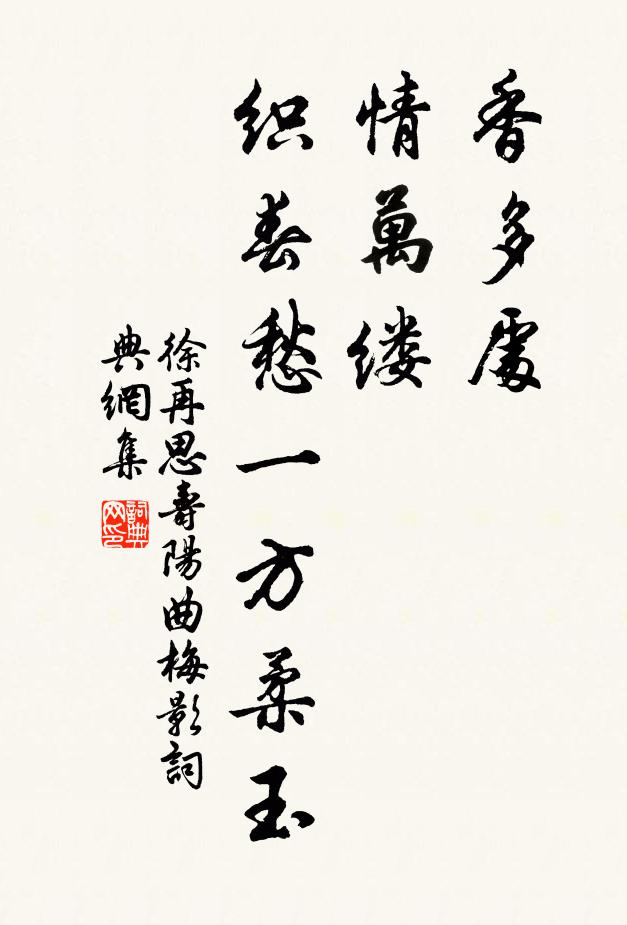 香多處
情萬缕
织春愁一方柔玉
徐再思壽陽曲梅影詞
典網集
詞典网印